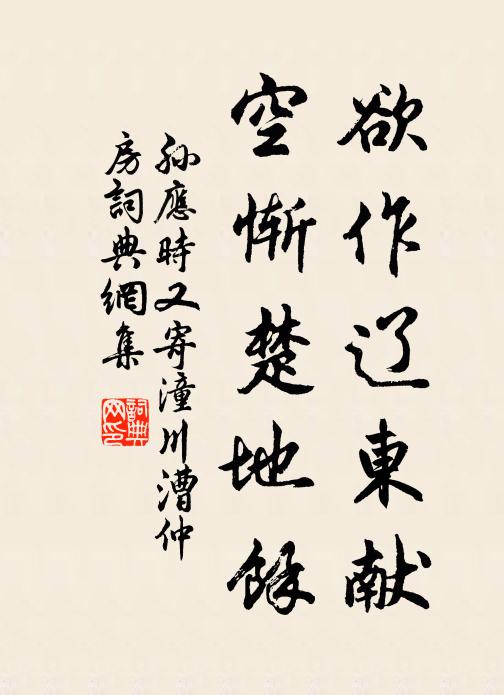 欲作辽東献
空慚楚地餘
孙應時又寄潼川漕仲
房詞典網集
詞典网印